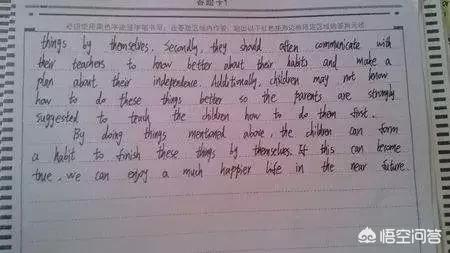 答题卡1
things by themselves. Secondly, they should often communicate with
their teachers to know better about their habits and make a
plan about their independence. Additionally, children may not know
how to do these things better so the parents are strongly
suggested to teach the children how to do them first.
By doing things mentioned above, the children can form
a habit to finish these things by themselves. If this can become
true, we can enjoy a much happier life in the near future.
悟空问答